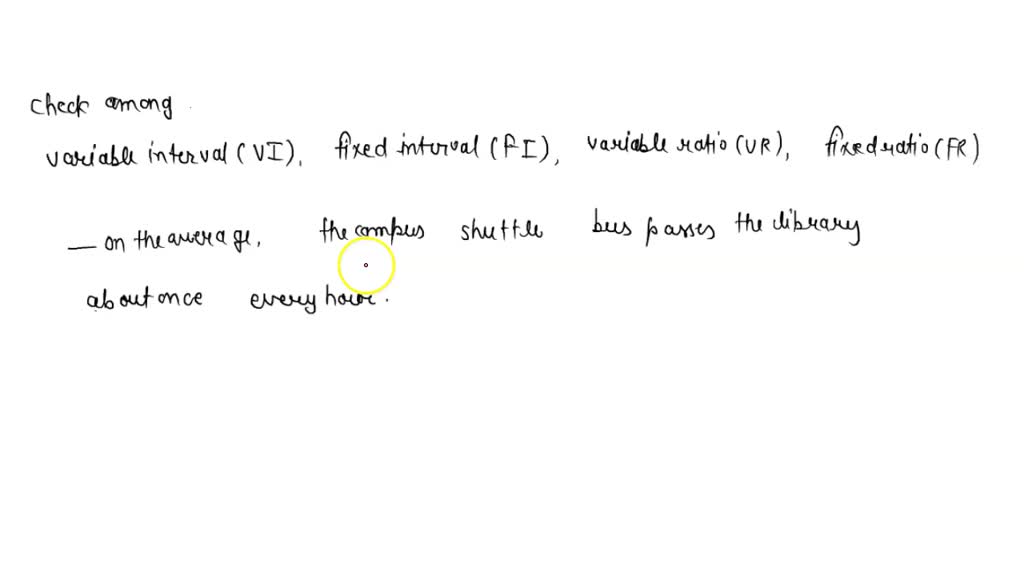 check among
variable interval (VI), fixed interval (FI), variable ratio (VR), fixed ratio (FR)
— on the average, the campus shuttle bus passes the library
about once every hour.